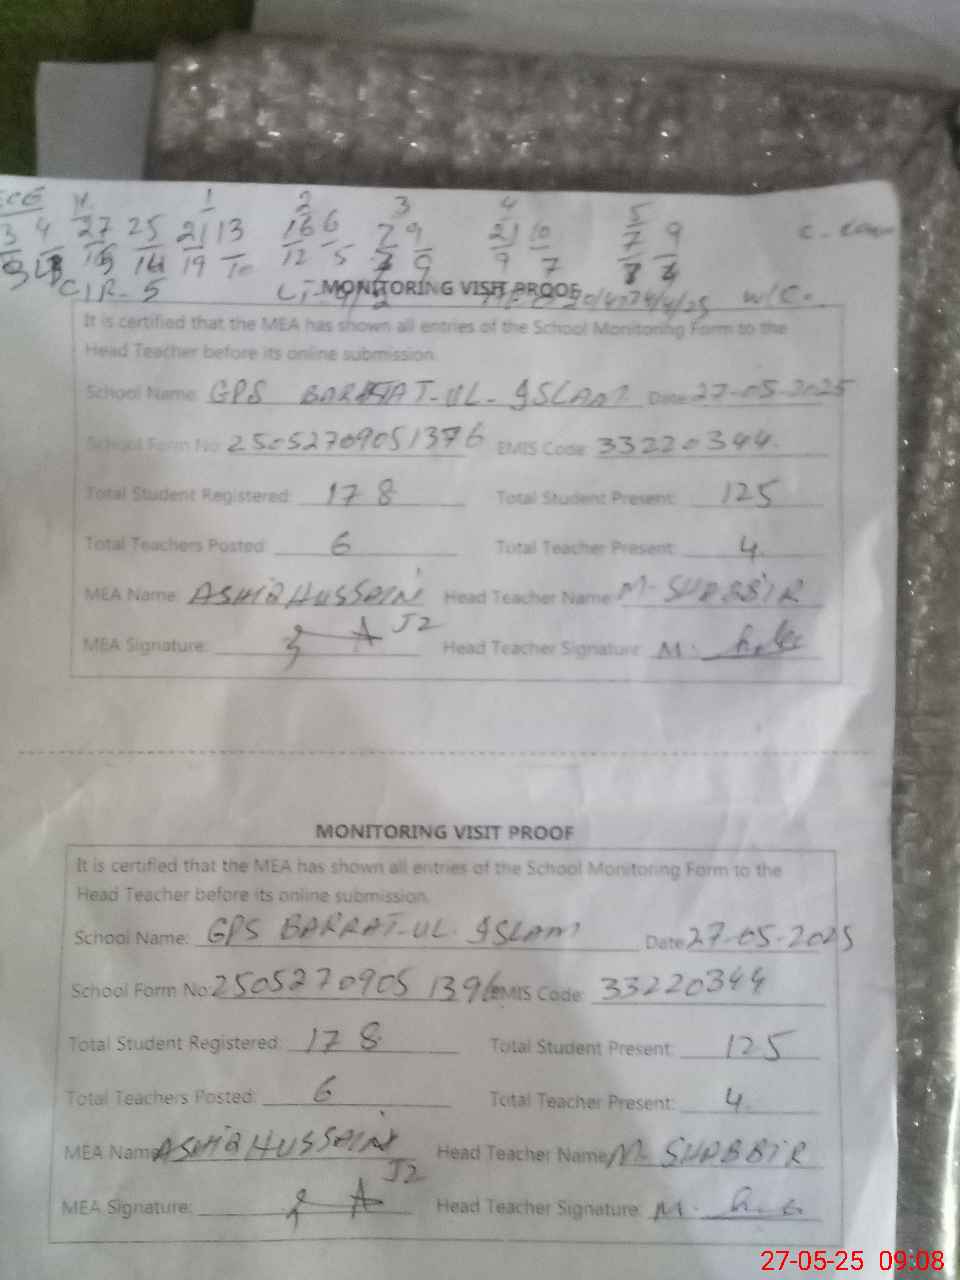 ECE K 1 2 3 4 5
3 4 27 25 21 13 16 6 7 9 21 10 7 9
19 10 12 5 9 9 7
CIR. 5 W/C.
MONITORING VISIT PROOF
It is certified that the MEA has shown all entries of the School Monitoring Form to the
Head Teacher before its online submission.
School Name: GPS BARRAT-UL-ISLAM Date 27-05-2025
School Form No: 2505270905 1376 EMIS Code: 33220344
Total Student Registered: 178 Total Student Present: 125
Total Teachers Posted: 6 Total Teacher Present: 4
MEA Name: ASHIQ HUSSAIN Head Teacher Name: M. SHABBIR
J2
MEA Signature: Head Teacher Signature: M.
MONITORING VISIT PROOF
It is certified that the MEA has shown all entries of the School Monitoring Form to the
Head Teacher before its online submission.
School Name: GPS BARRAT-UL-ISLAM Date 27-05-2025
School Form No: 2505270905 1396 EMIS Code: 33220344
Total Student Registered: 178 Total Student Present: 125
Total Teachers Posted: 6 Total Teacher Present: 4
MEA Name: ASHIQ HUSSAIN Head Teacher Name: M. SHABBIR
J2
MEA Signature: Head Teacher Signature: M.
27-05-25 09:08